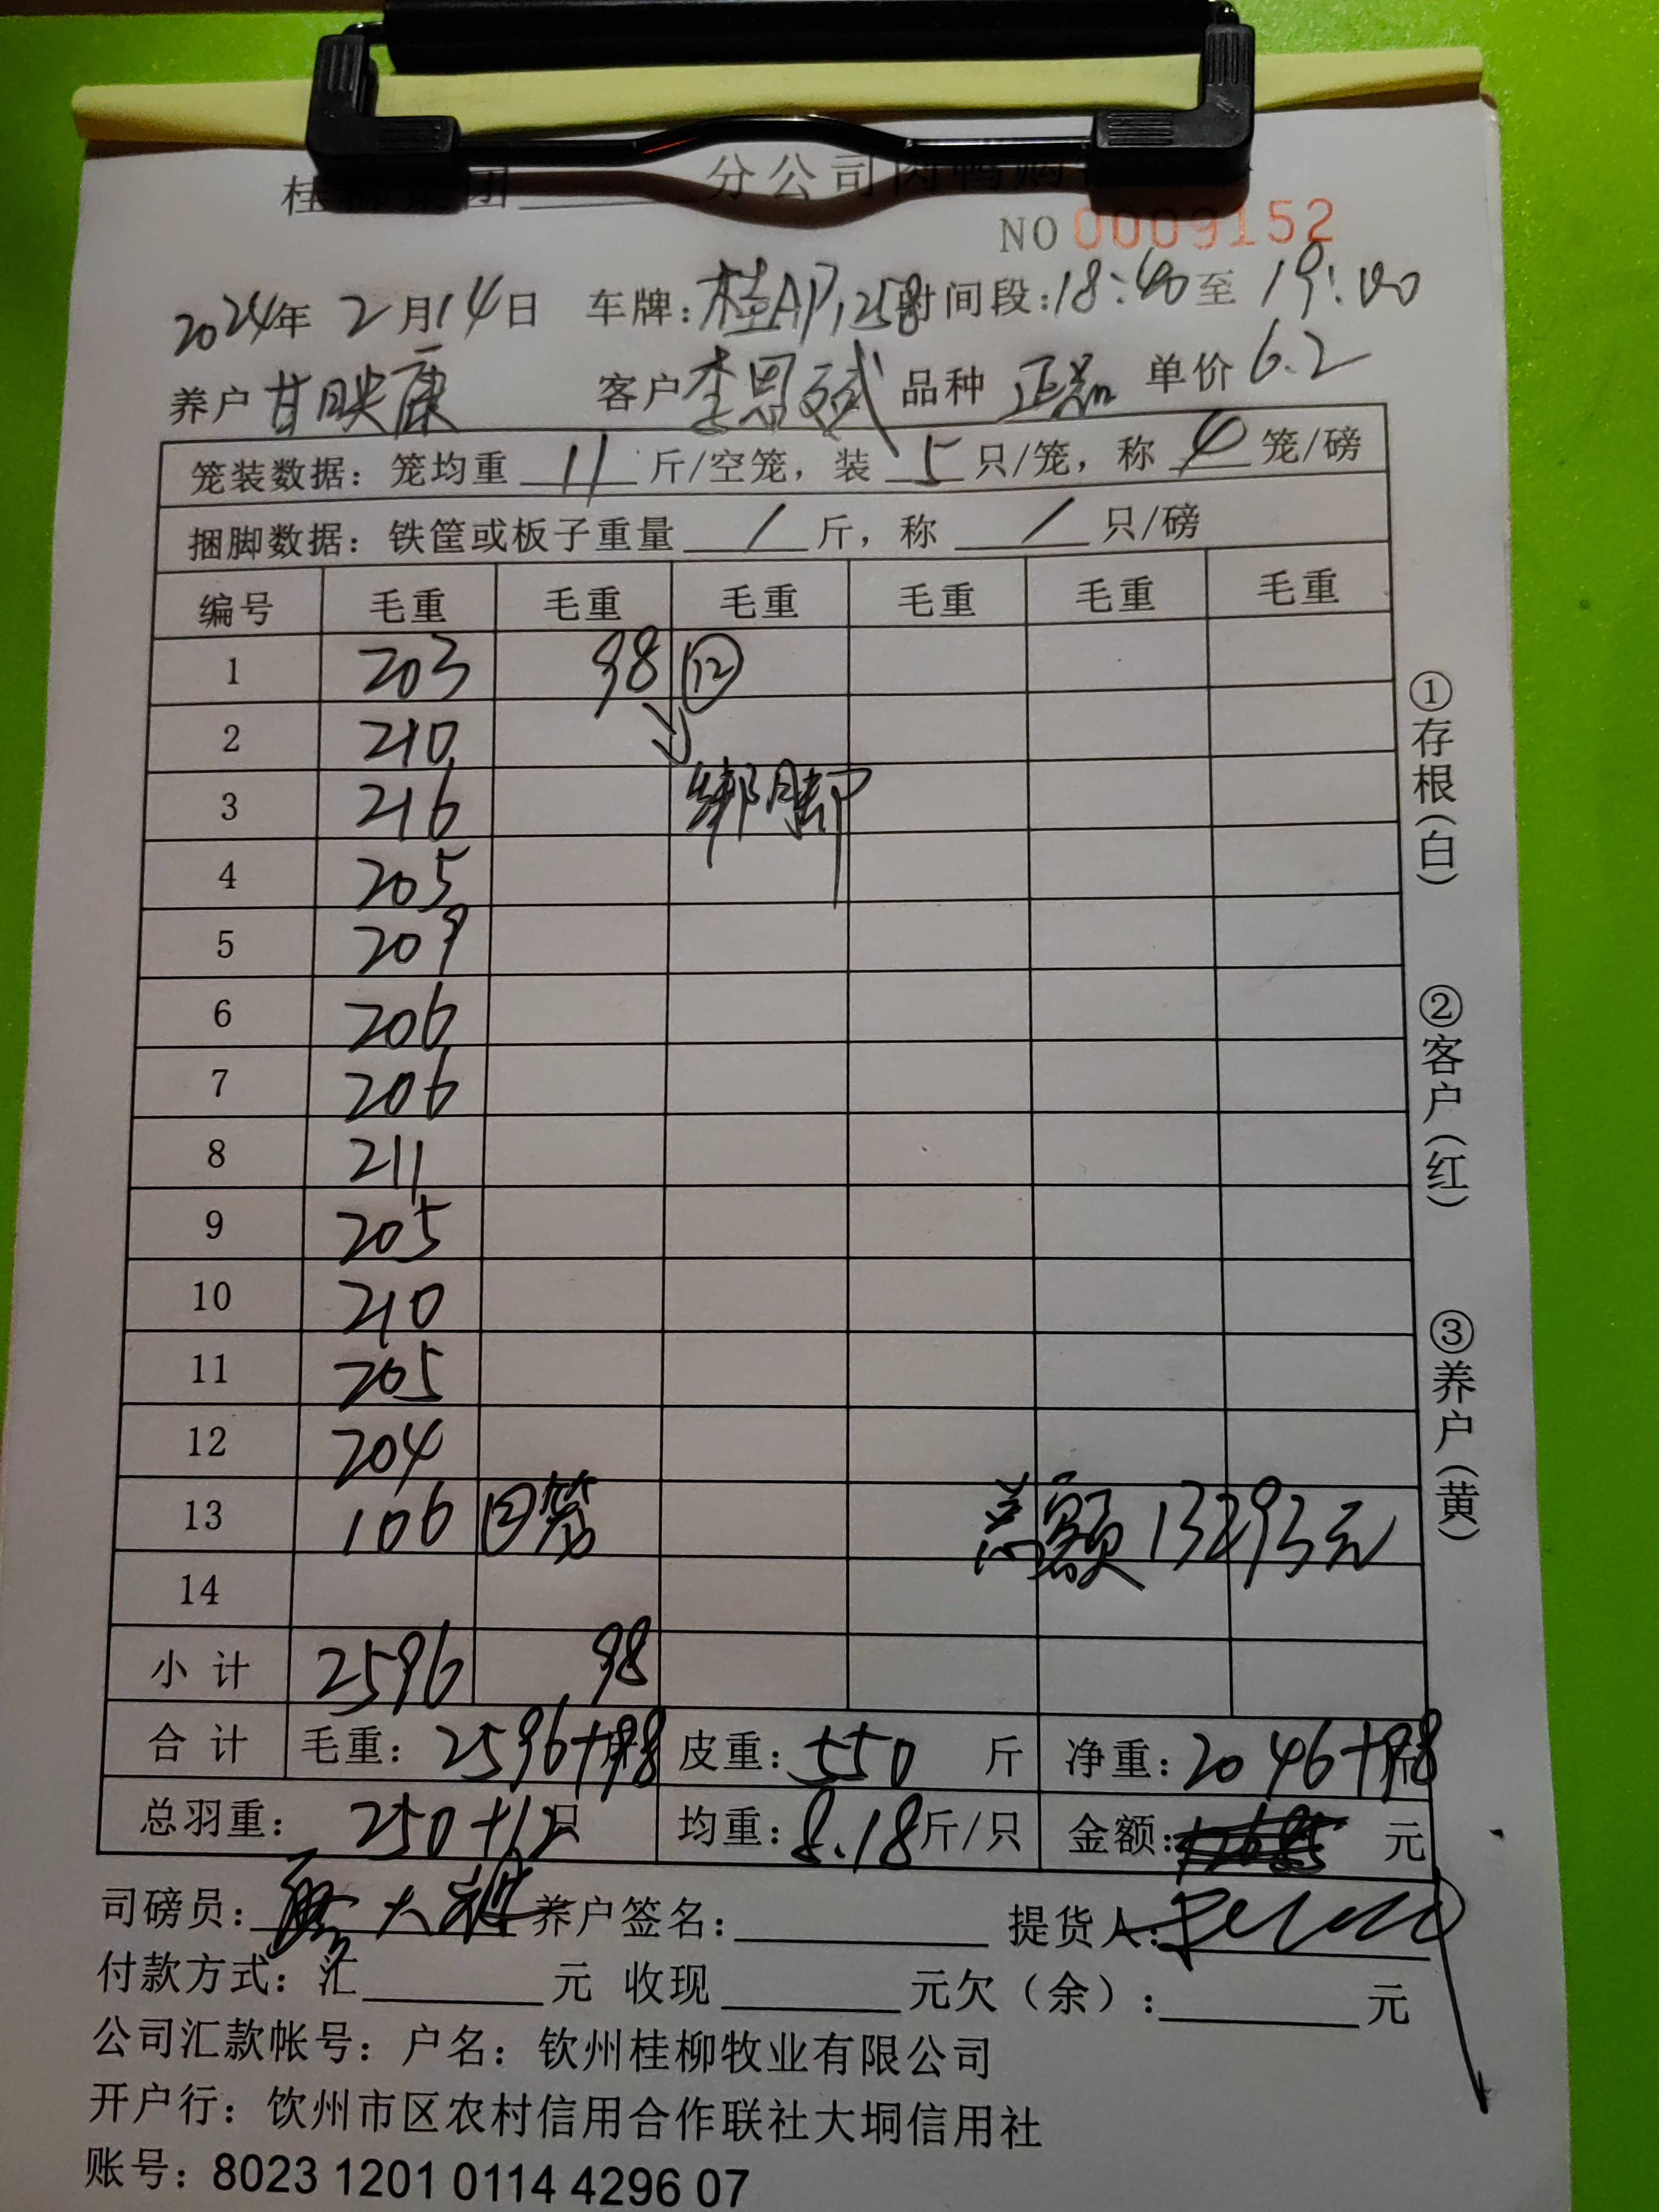 分公司肉鸭购
NO 0009152
2024年 2月14日 车牌:桂AP1258 时间段:18:40至 19:00
养户 甘映康 客户 李恩斌 品种 单价 6.2
笼装数据: 笼均重 11 斤/空笼, 装 5 只/笼, 称 4 笼/磅
捆脚数据: 铁筐或板子重量 / 斤, 称 / 只/磅
编号 毛重 毛重 毛重 毛重 毛重 毛重
1 203 98 ⑫
2 210
3 216 绑脚
4 205
5 209
6 206
7 206
8 211
9 205
10 210
11 205
12 204
13 106 ②笼
14
总额13293元
小 计 2596 98
合 计 毛重: 2596+98 皮重: 550 斤 净重: 2046+98
总羽重: 250+12只 均重: 8.18斤/只 金额: 元
司磅员: 养户签名: 提货人:
付款方式: 汇 元 收现 元欠(余): 元
公司汇款帐号: 户名: 钦州桂柳牧业有限公司
开户行: 饮州市区农村信用合作联社大垌信用社
账号: 8023 1201 0114 4296 07
①存根(白)
②客户(红)
③养户(黄)